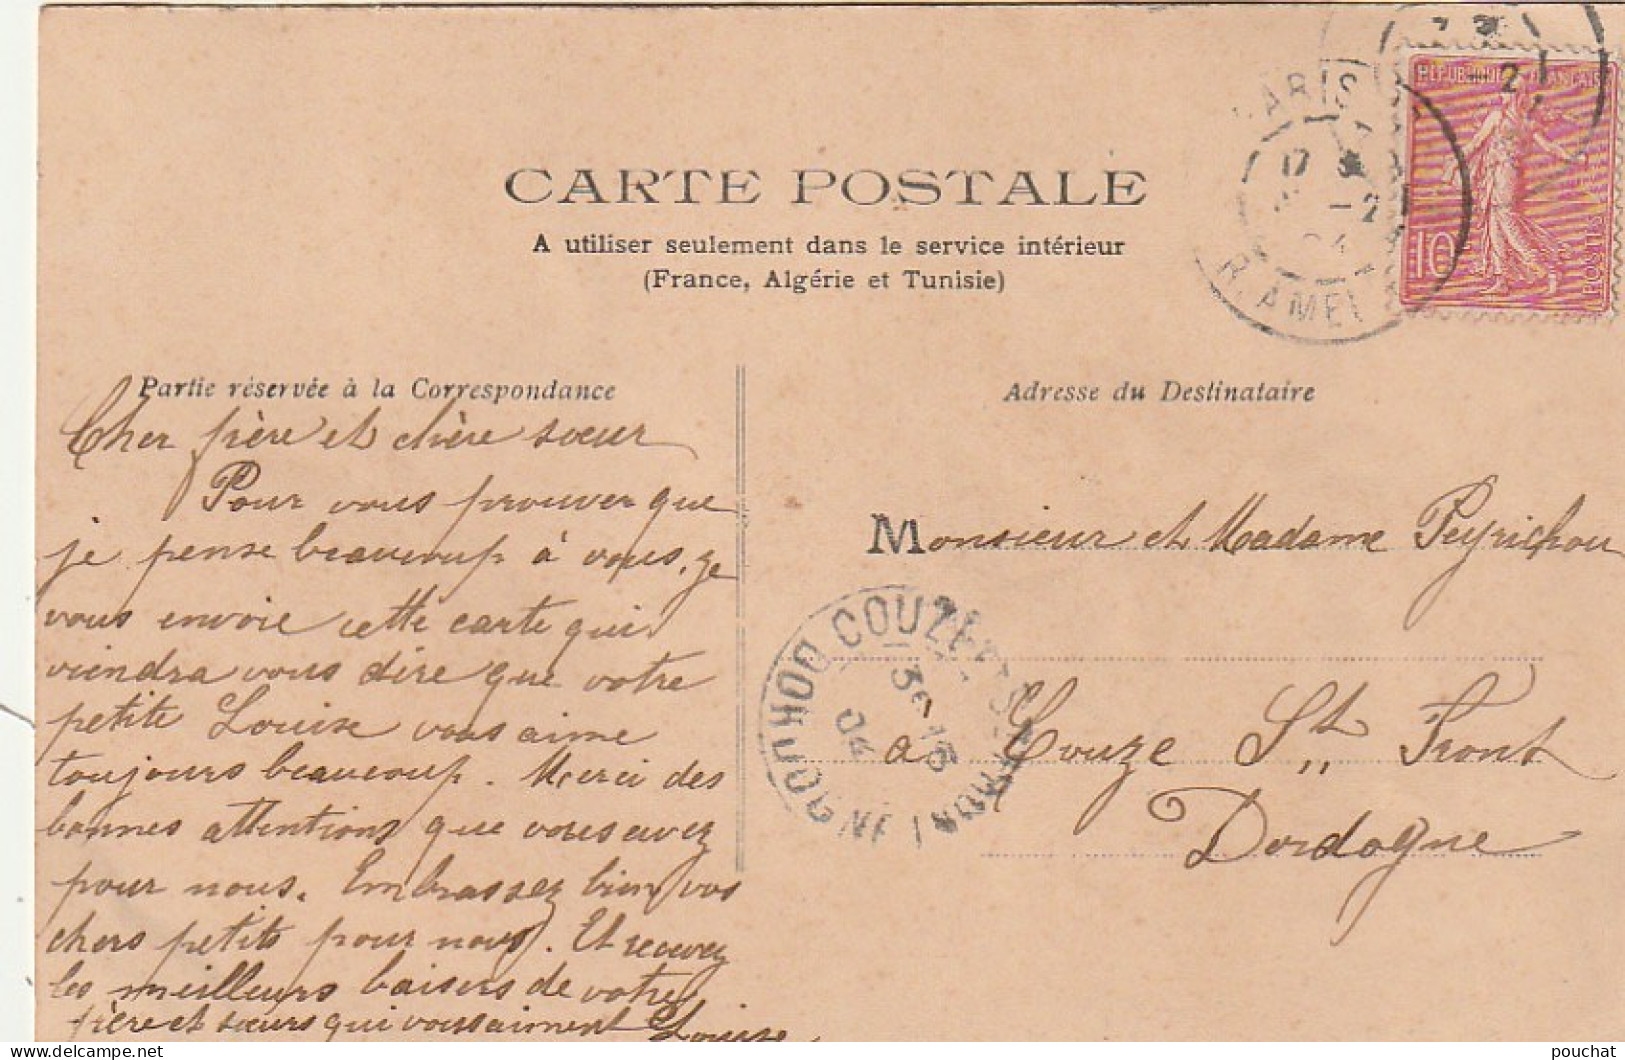 CARTE POSTALE
A utiliser seulement dans le service intérieur
(France, Algérie et Tunisie)
REPUBLIQUE FRANÇAISE
10
POSTES
PARIS
17
-2
04
R. AMEL
Partie réservée à la Correspondance
Cher frère et chère sœur
Pour vous prouver que
je pense beaucoup à vous, je
vous envoie cette carte qui
viendra vous dire que votre
petite Louise vous aime
toujours beaucoup. Merci des
bonnes attentions que vous avez
pour nous. Embrassez bien vos
chers petits pour nous. Et recevez
les meilleurs baisers de votre
frère et sœurs qui vous aiment Louise
Adresse du Destinataire
Monsieur et Madame Peyrichou
à Couze St. Front
Dordogne
COUZE
DORDOGNE
04
pouchat